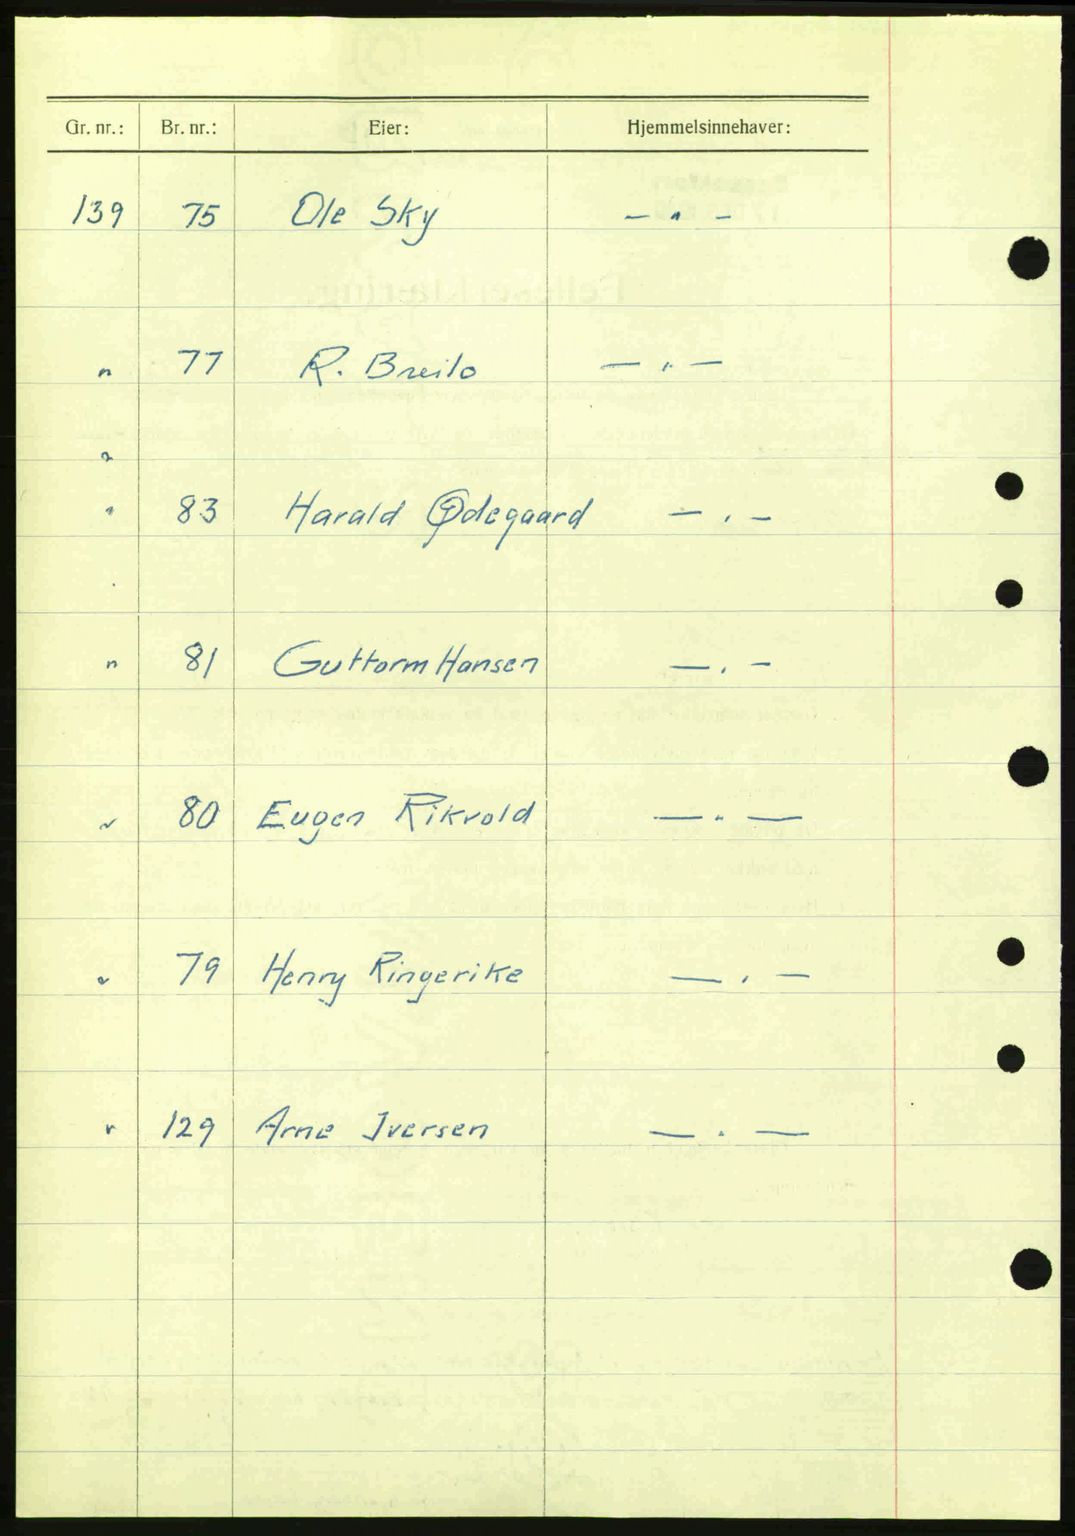 Gr. nr.: Br. nr.: Eier: Hjemmelsinnehaver:
139 75 Ole Sky — " —
" 77 R. Breilo — " —
"
" 83 Harald Ødegaard — " —
"
" 81 Guttorm Hansen — " —
" 80 Eugen Rikvold — " —
" 79 Henry Ringerike — " —
" 129 Arne Iversen — " —